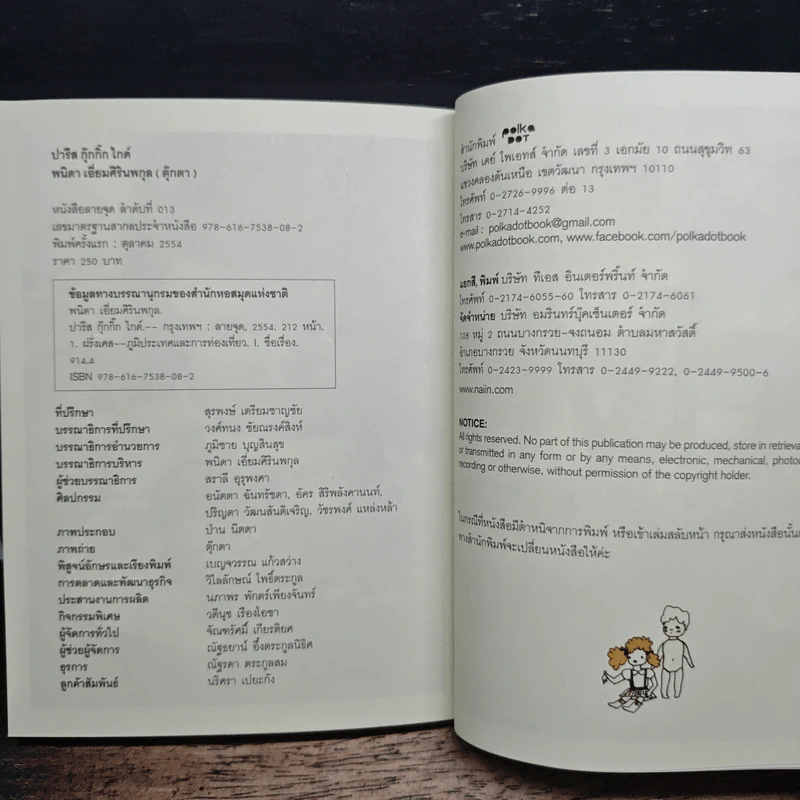 ปารีส กุ๊กกิ๊ก ไกด์
พนิดา เอี่ยมศิรินพกุล ( ตุ๊กตา )
หนังสือลายจุด ลำดับที่ 013
เลขมาตรฐานสากลประจำหนังสือ 978-616-7538-08-2
พิมพ์ครั้งแรก : ตุลาคม 2554
ราคา 250 บาท
ข้อมูลทางบรรณานุกรมของสำนักหอสมุดแห่งชาติ
พนิดา เอี่ยมศิรินพกุล.
ปารีส กุ๊กกิ๊ก ไกด์.-- กรุงเทพฯ : ลายจุด, 2554. 212 หน้า.
1. ฝรั่งเศส--ภูมิประเทศและการท่องเที่ยว. I. ชื่อเรื่อง.
914.4
ISBN 978-616-7538-08-2
ที่ปรึกษา สุรพงษ์ เตรียมชาญชัย
บรรณาธิการที่ปรึกษา วงศ์ทนง ชัยณรงค์สิงห์
บรรณาธิการอำนวยการ ภูมิชาย บุญสินสุข
บรรณาธิการบริหาร พนิดา เอี่ยมศิรินพกุล
ผู้ช่วยบรรณาธิการ สราลี อุรุพงศา
ศิลปกรรม อนัตตา ฉันทรัชตา, อัคร สิริพลังคานนท์,
ปริญดา วัฒนสันติเจริญ, วัชรพงศ์ แหล่งหล้า
ภาพประกอบ ป่าน นิตตา
ภาพถ่าย ตุ๊กตา
พิสูจน์อักษรและเรียงพิมพ์ เบญจวรรณ แก้วสว่าง
การตลาดและพัฒนาธุรกิจ วิไลลักษณ์ โพธิ์ตระกูล
ประสานงานการผลิต นภาพร พักตร์เพียงจันทร์
กิจกรรมพิเศษ วดีนุช เรืองโอชา
ผู้จัดการทั่วไป จัณฑรัศมิ์ เกียรติยศ
ผู้ช่วยผู้จัดการ ณัฐธยาน์ อึ้งตระกูลนิธิศ
ธุรการ ณัฐรดา ตระกูลสม
ลูกค้าสัมพันธ์ นริศรา เปยะกัง
สำนักพิมพ์ polka DOT
บริษัท เดย์ โพเอทส์ จำกัด เลขที่ 3 เอกมัย 10 ถนนสุขุมวิท 63
แขวงคลองตันเหนือ เขตวัฒนา กรุงเทพฯ 10110
โทรศัพท์ 0-2726-9996 ต่อ 13
โทรสาร 0-2714-4252
e-mail : polkadotbook@gmail.com
www.polkadotbook.com, www.facebook.com/polkadotbook
แยกสี, พิมพ์ บริษัท ทีเอส อินเตอร์พริ้นท์ จำกัด
โทรศัพท์ 0-2174-6055-60 โทรสาร 0-2174-6061
จัดจำหน่าย บริษัท อมรินทร์บุ๊คเซ็นเตอร์ จำกัด
108 หมู่ 2 ถนนบางกรวย-จงถนอม ตำบลมหาสวัสดิ์
อำเภอบางกรวย จังหวัดนนทบุรี 11130
โทรศัพท์ 0-2423-9999 โทรสาร 0-2449-9222, 0-2449-9500-6
www.naiin.com
NOTICE:
All rights reserved. No part of this publication may be produced, store in retrieval
or transmitted in any form or by any means, electronic, mechanical, photoc
recording or otherwise, without permission of the copyright holder.
ในกรณีที่หนังสือมีตำหนิจากการพิมพ์ หรือเข้าเล่มสลับหน้า กรุณาส่งหนังสือนั้น
ทางสำนักพิมพ์จะเปลี่ยนหนังสือให้ค่ะ